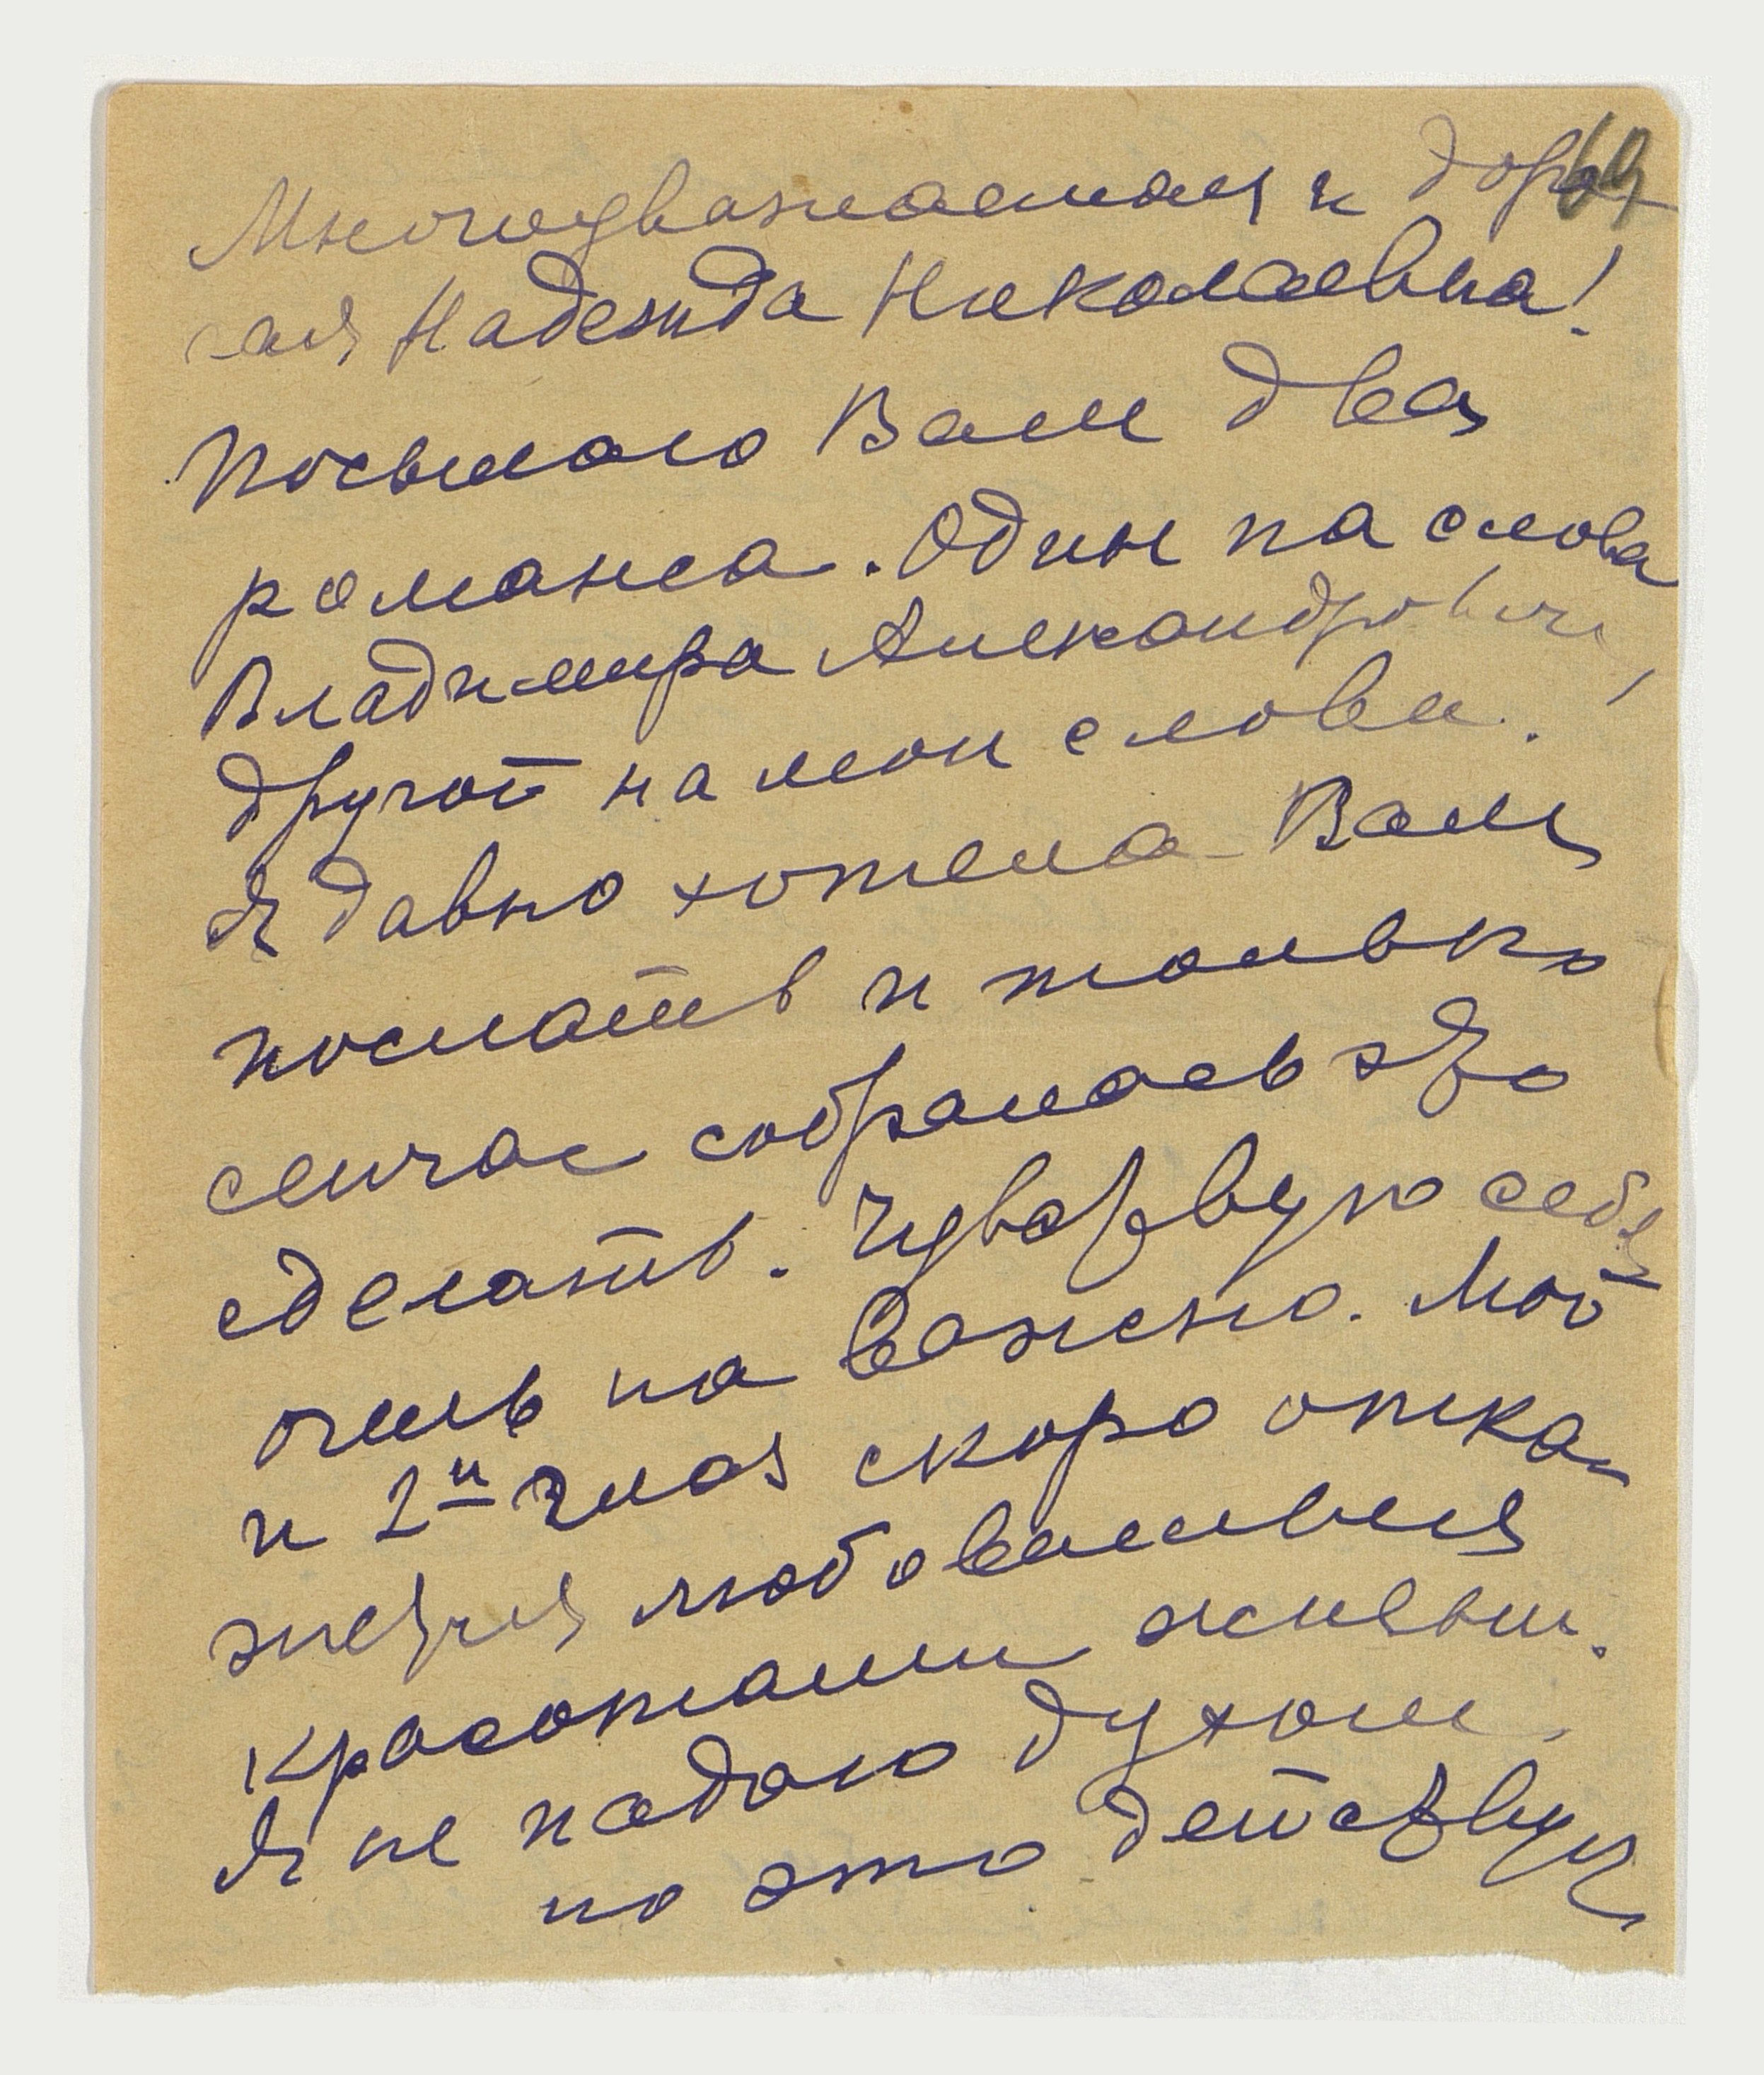 69
Многоуважаемая и доро-
гая Надежда Николаевна!
Посылаю Вам два
романса. Один на слова
Владимира Александровича,
другой на мои слова.
Я давно хотела Вам
послать и только
сейчас собралась это
сделать. Чувствую себя
очень на важно. Мой
и 2й глаз скоро отка-
жется любоваться
красотами жизни.
Я не падаю духом,
но это действует